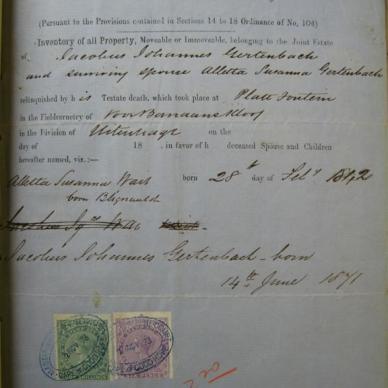 (Pursuant to the Provisions contained in Sections 14 to 18 Ordinance of No, 104)
Inventory of all Property, Moveable or Immoveable, belonging to the Joint Estate
of Jacobus Johannes Gertenbach
and surviving spouse Alletta Susanna Gertenbach
relinquished by his Testate death, which took place at Platt Fontein
in the Fieldcornetcy of Voor
in the Division of Uitenhage on the
day of 18 , in favor of h deceased Spouse and Children
hereafter named, viz.:—
Alletta Susanna born 28 day of Feby
born Blignault
Jacobus Johannes Gertenbach - born
14th June 1871